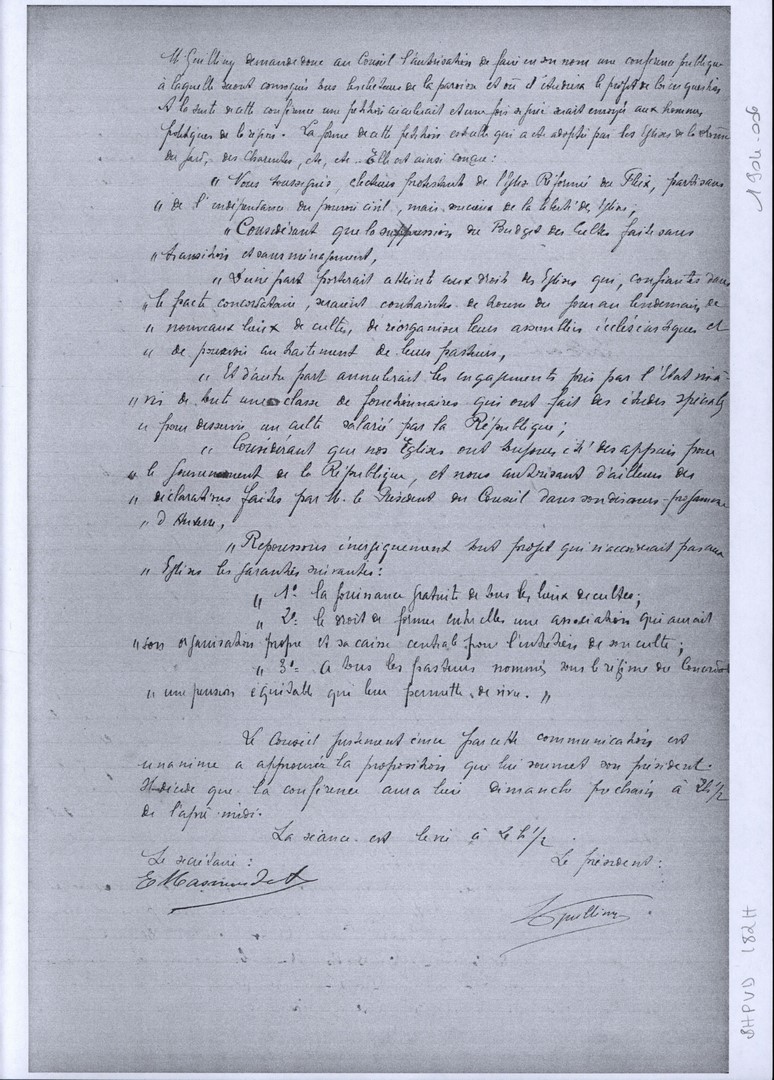 M. Guilliny demande donc au Conseil l'autorisation de faire en son nom une conférence publique
à laquelle seront convoqués tous les électeurs de la paroisse et où il étudiera le projet de loi en question
A la suite de cette conférence une pétition circulerait et une fois signée serait envoyée aux hommes
politiques de la région. La forme de cette pétition est celle qui a été adoptée par les Eglises de la Drôme
du Gard, des Charentes, etc, etc. Elle est ainsi conçue:
" Nous soussignés, électeurs protestants de l'Eglise Réformée du Fleix, partisans
" de l'indépendance du pouvoir civil, mais soucieux de la liberté des Eglises,
" Considérant que la suppression du Budget des Cultes faite sans
" transition et sans ménagement,
" D'une part porterait atteinte aux droits des Eglises qui, confiantes dans
" le pacte concordataire, seraient contraintes de trouver du jour au lendemain, de
" nouveaux lieux de cultes, de réorganiser leurs assemblées ecclésiastiques et
" de pourvoir au traitement de leurs pasteurs,
" Et d'autre part annulerait les engagements pris par l'Etat vis à
" vis de toute une classe de fonctionnaires qui ont fait des études spéciales
" pour desservir un culte salarié par la République;
" Considérant que nos Eglises ont toujours été des appuis pour
" le Gouvernement de la République, et nous autorisant d'ailleurs des
" déclarations faites par M. le Président du Conseil dans son discours-programme
" d'Auxerre,
" Repoussons énergiquement tout projet qui n'accorderait pas aux
" Eglises les garanties suivantes:
" 1º la jouissance gratuite de tous les lieux de cultes;
" 2º le droit de former entre elles une association qui aurait
" son organisation propre et sa caisse centrale pour l'entretien de son culte;
" 3º = à tous les pasteurs nommés sous le régime du Concordat
" une pension équitable qui leur permette de vivre. "
Le Conseil justement ému par cette communication est
unanime à approuver la proposition que lui soumet son président.
Il décide que la conférence aura lieu dimanche prochain à 2h 1/2
de l'après-midi.
La séance est levée à h 1/2
Le secrétaire: Le président:
1904-06
SHPVD 182H